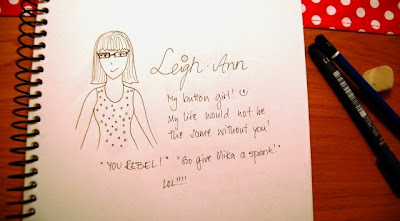 Leigh-Ann
My button girl! ☺
My life would not be
the same without you!
"YOU REBEL!" "Go give Mika a spank".
LOL!!!!